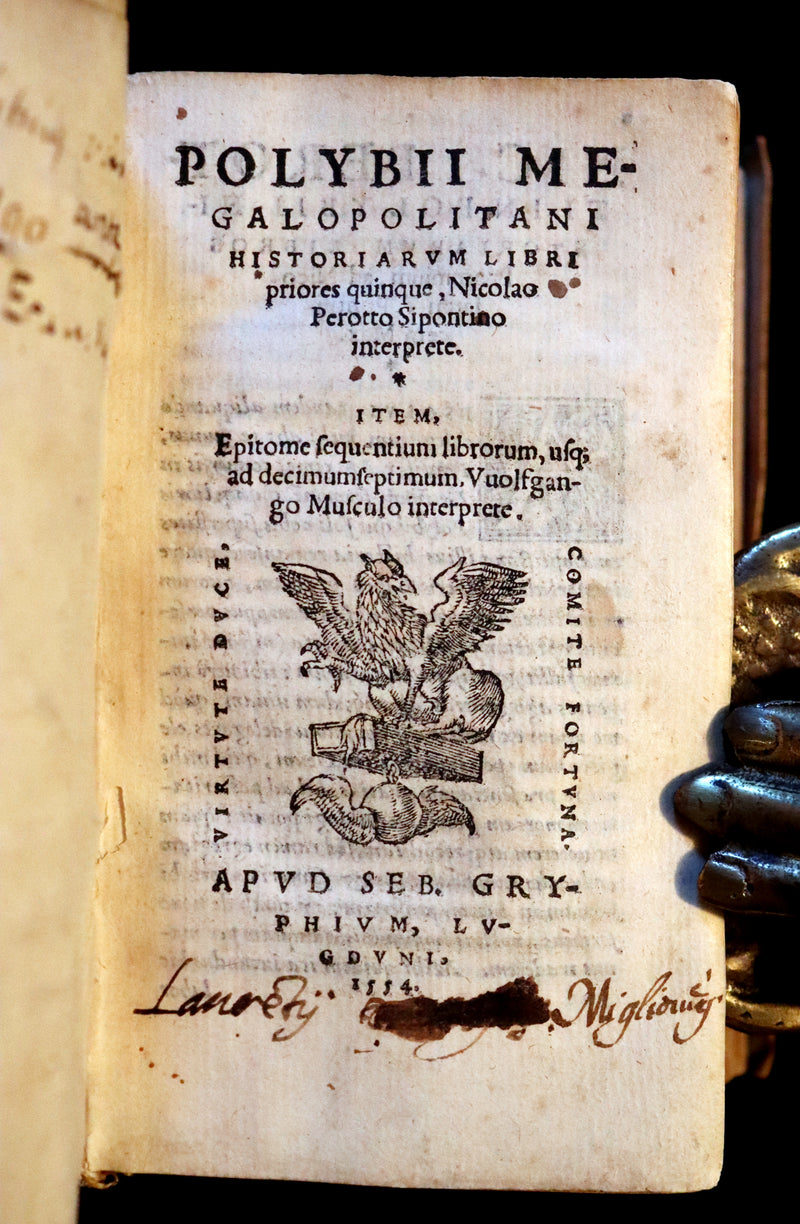 POLYBII ME-
GALOPOLITANI
HISTORIARVM LIBRI
priores quinque, Nicolao
Perotto Sipontino
interprete.
*
ITEM,
Epitome ſequentium librorum, uſq;
ad decimumſeptimum. Vuolfgan-
go Muſculo interprete.
VIRTVTE DVCE,
COMITE FORTVNA.
APVD SEB. GRY-
PHIVM, LV-
GDVNI,
1554.